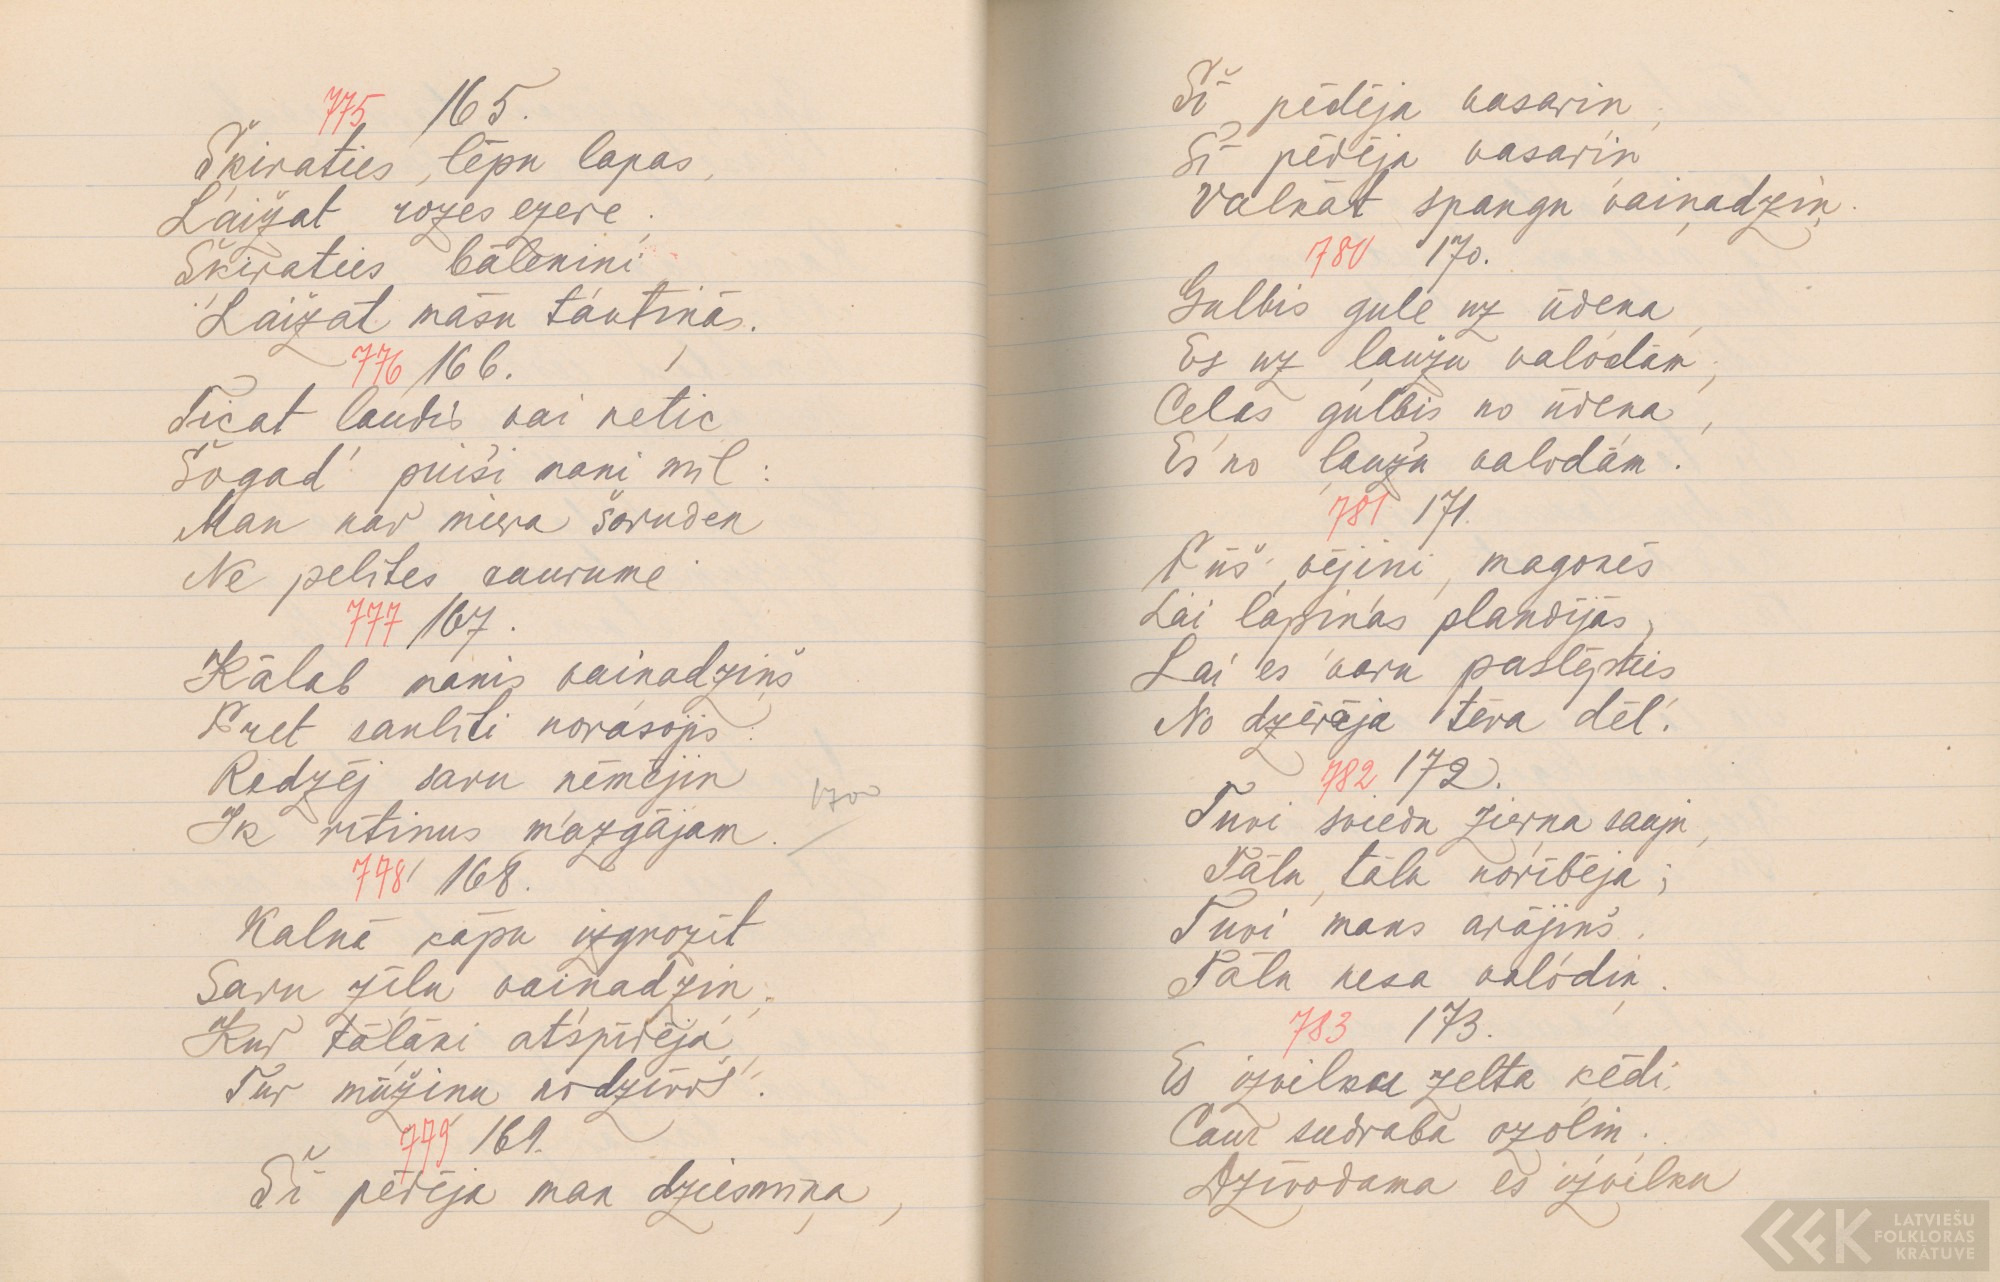 775 165.
Šķiraties, lēpu lapas,
Ļaižat rozes ezerē;
Šķiraties bāleniņi
Ļaižat māsu tautiņās.
776 166.
Ticat ļaudis vai netic
Šogad' puiši mani mīl:
Man nav miera šoruden
Ne pelītes raurumē
777 167.
Kālab manis vainadziņš
Pret saulīti norasojis:
Redzēj savu ņēmējiņ
Ik rītiņus mazgājam.
1700
778 168.
Kalnā kāpu izgrozīt
Savu zīļu vainadziņ;
Kur tālāki atspīdēja,
Tur mūžiņu nodzīvoš'.
779 169.
Šī pēdēja man dziesmiņa,
Šī pēdēja vasariņ,
Šī pēdēja vasariņ
Valkāt spangu vainadziņ.
780 170.
Gulbis gule uz ūdeņa,
Es uz ļaužu valodām;
Ceļas gulbis no ūdeņa,
Es no ļaužu valodām.
781 171.
Pūš, vējiņi, magonēs
Lai lapiņas plandījās,
Lai es varu paslēpties
No dzērēja tēva dēl'.
782 172.
Tuvi sviedu zirņa sauju,
Tālu, tālu norībēja;
Tuvi mans arājiņš,
Tālu nesa valodiņ.
783 173.
Es izvilku zelta ķēdi
Caur sudraba ozoliņ.
Dzīvodama es izvilku
LATVIEŠU
FOLKLORAS
KRĀTUVE